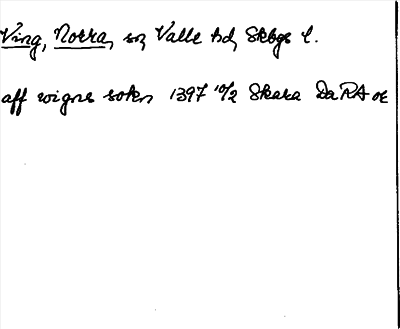 Ving, Norra, sn Valle hd, Skbgs l.
aff wignes sokn 1397 10/2 Skara DaRA or